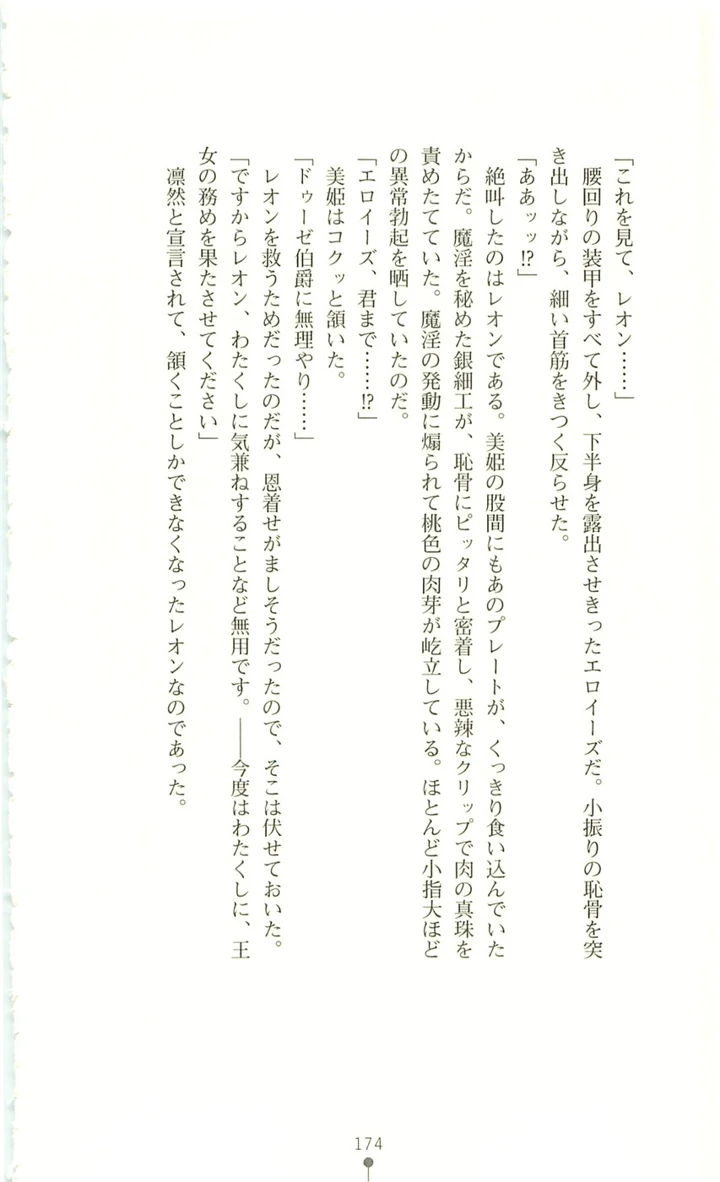 「これを見て、レオン……」
　腰回りの装甲をすべて外し、下半身を露出させきったエロイーズだ。小振りの恥骨を突
き出しながら、細い首筋をきつく反らせた。
「ああッッ⁉」
　絶叫したのはレオンである。美姫の股間にもあのプレートが、くっきり食い込んでいた
からだ。魔淫を秘めた銀細工が、恥骨にピッタリと密着し、悪辣なクリップで肉の真珠を
責めたてていた。魔淫の発動に煽られて桃色の肉芽が屹立している。ほとんど小指大ほど
の異常勃起を晒していたのだ。
「エロイーズ、君まで……⁉」
　美姫はコクッと頷いた。
「ドゥーゼ伯爵に無理やり……」
　レオンを救うためだったのだが、恩着せがましそうだったので、そこは伏せておいた。
「ですからレオン、わたくしに気兼ねすることなど無用です。――今度はわたくしに、王
女の務めを果たさせてください」
　凛然と宣言されて、頷くことしかできなくなったレオンなのであった。
174